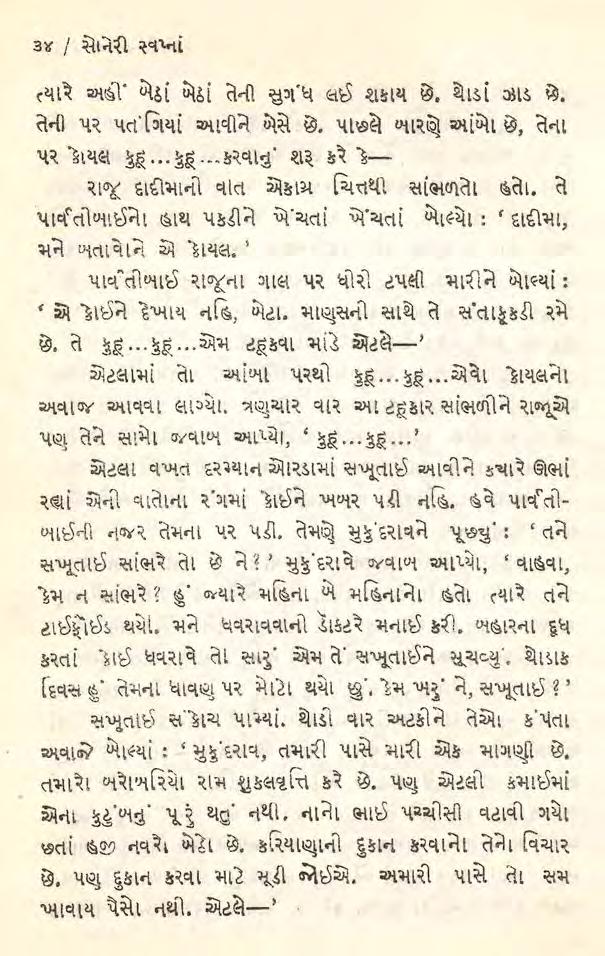 ૩૪ / સોનેરી સ્વપ્નાં
ત્યારે અહીં બેઠાં બેઠાં તેની સુગંધ લઈ શકાય છે. થોડાં ઝાડ છે.
તેની પર પતંગિયાં આવીને બેસે છે. પાછલે બારણે આંબો છે, તેના
પર કોયલ કુહૂ...કુહૂ...કરવાનું શરૂ કરે કે—
રાજૂ દાદીમાની વાત એકાગ્ર ચિત્તથી સાંભળતો હતો. તે
પાર્વતીબાઈનો હાથ પકડીને ખેંચતાં ખેંચતાં બોલ્યો : ‘ દાદીમા,
મને બતાવોને એ કોયલ. ’
પાર્વતીબાઈ રાજૂના ગાલ પર ધીરી ટપલી મારીને બોલ્યાં :
‘ એ કોઈને દેખાય નહિ, બેટા. માણસની સાથે તે સંતાકૂકડી રમે
છે. તે કુહૂ...કુહૂ...એમ ટહૂકવા માંડે એટલે—’
એટલામાં તો આંબા પરથી કુહૂ...કુહૂ...એવો કોયલનો
અવાજ આવવા લાગ્યો. ત્રણચાર વાર આ ટહૂકાર સાંભળીને રાજૂએ
પણ તેને સામો જવાબ આપ્યો, ‘ કુહૂ...કુહૂ...’
એટલા વખત દરમ્યાન ઓરડામાં સખૂતાઈ આવીને ક્યારે ઊભાં
રહ્યાં એની વાતોના રંગમાં કોઈને ખબર પડી નહિ. હવે પાર્વતી-
બાઈની નજર તેમના પર પડી. તેમણે મુકુંદરાવને પૂછ્યું : ‘ તને
સખૂતાઈ સાંભરે તો છે ને ? ’ મુકુંદરાવે જવાબ આપ્યો, ‘ વાહવા,
કેમ ન સાંભરે ? હું જ્યારે મહિના બે મહિનાનો હતો ત્યારે તને
ટાઈફોઈડ થયો. મને ધવરાવવાની ડૉક્ટરે મનાઈ કરી. બહારના દૂધ
કરતાં કોઈ ધવરાવે તો સારું એમ તેં સખૂતાઈને સૂચવ્યું. થોડાક
દિવસ હું તેમના ધાવણ પર મોટો થયો છું. કેમ ખરું ને, સખૂતાઈ ? ’
સખૂતાઈ સંકોચ પામ્યાં. થોડી વાર અટકીને તેઓ કંપતા
અવાજે બોલ્યાં : ‘ મુકુંદરાવ, તમારી પાસે મારી એક માગણી છે.
તમારો બરોબરિયો રામ શુકલવૃત્તિ કરે છે. પણ એટલી કમાઈમાં
એના કુટુંબનું પૂરું થતું નથી. નાનો ભાઈ પચ્ચીસી વટાવી ગયો
છતાં હજી નવરો બેઠો છે. કરિયાણાની દુકાન કરવાનો તેનો વિચાર
છે. પણ દુકાન કરવા માટે મૂડી જોઈએ. અમારી પાસે તો સમ
ખાવાય પૈસો નથી. એટલે—’